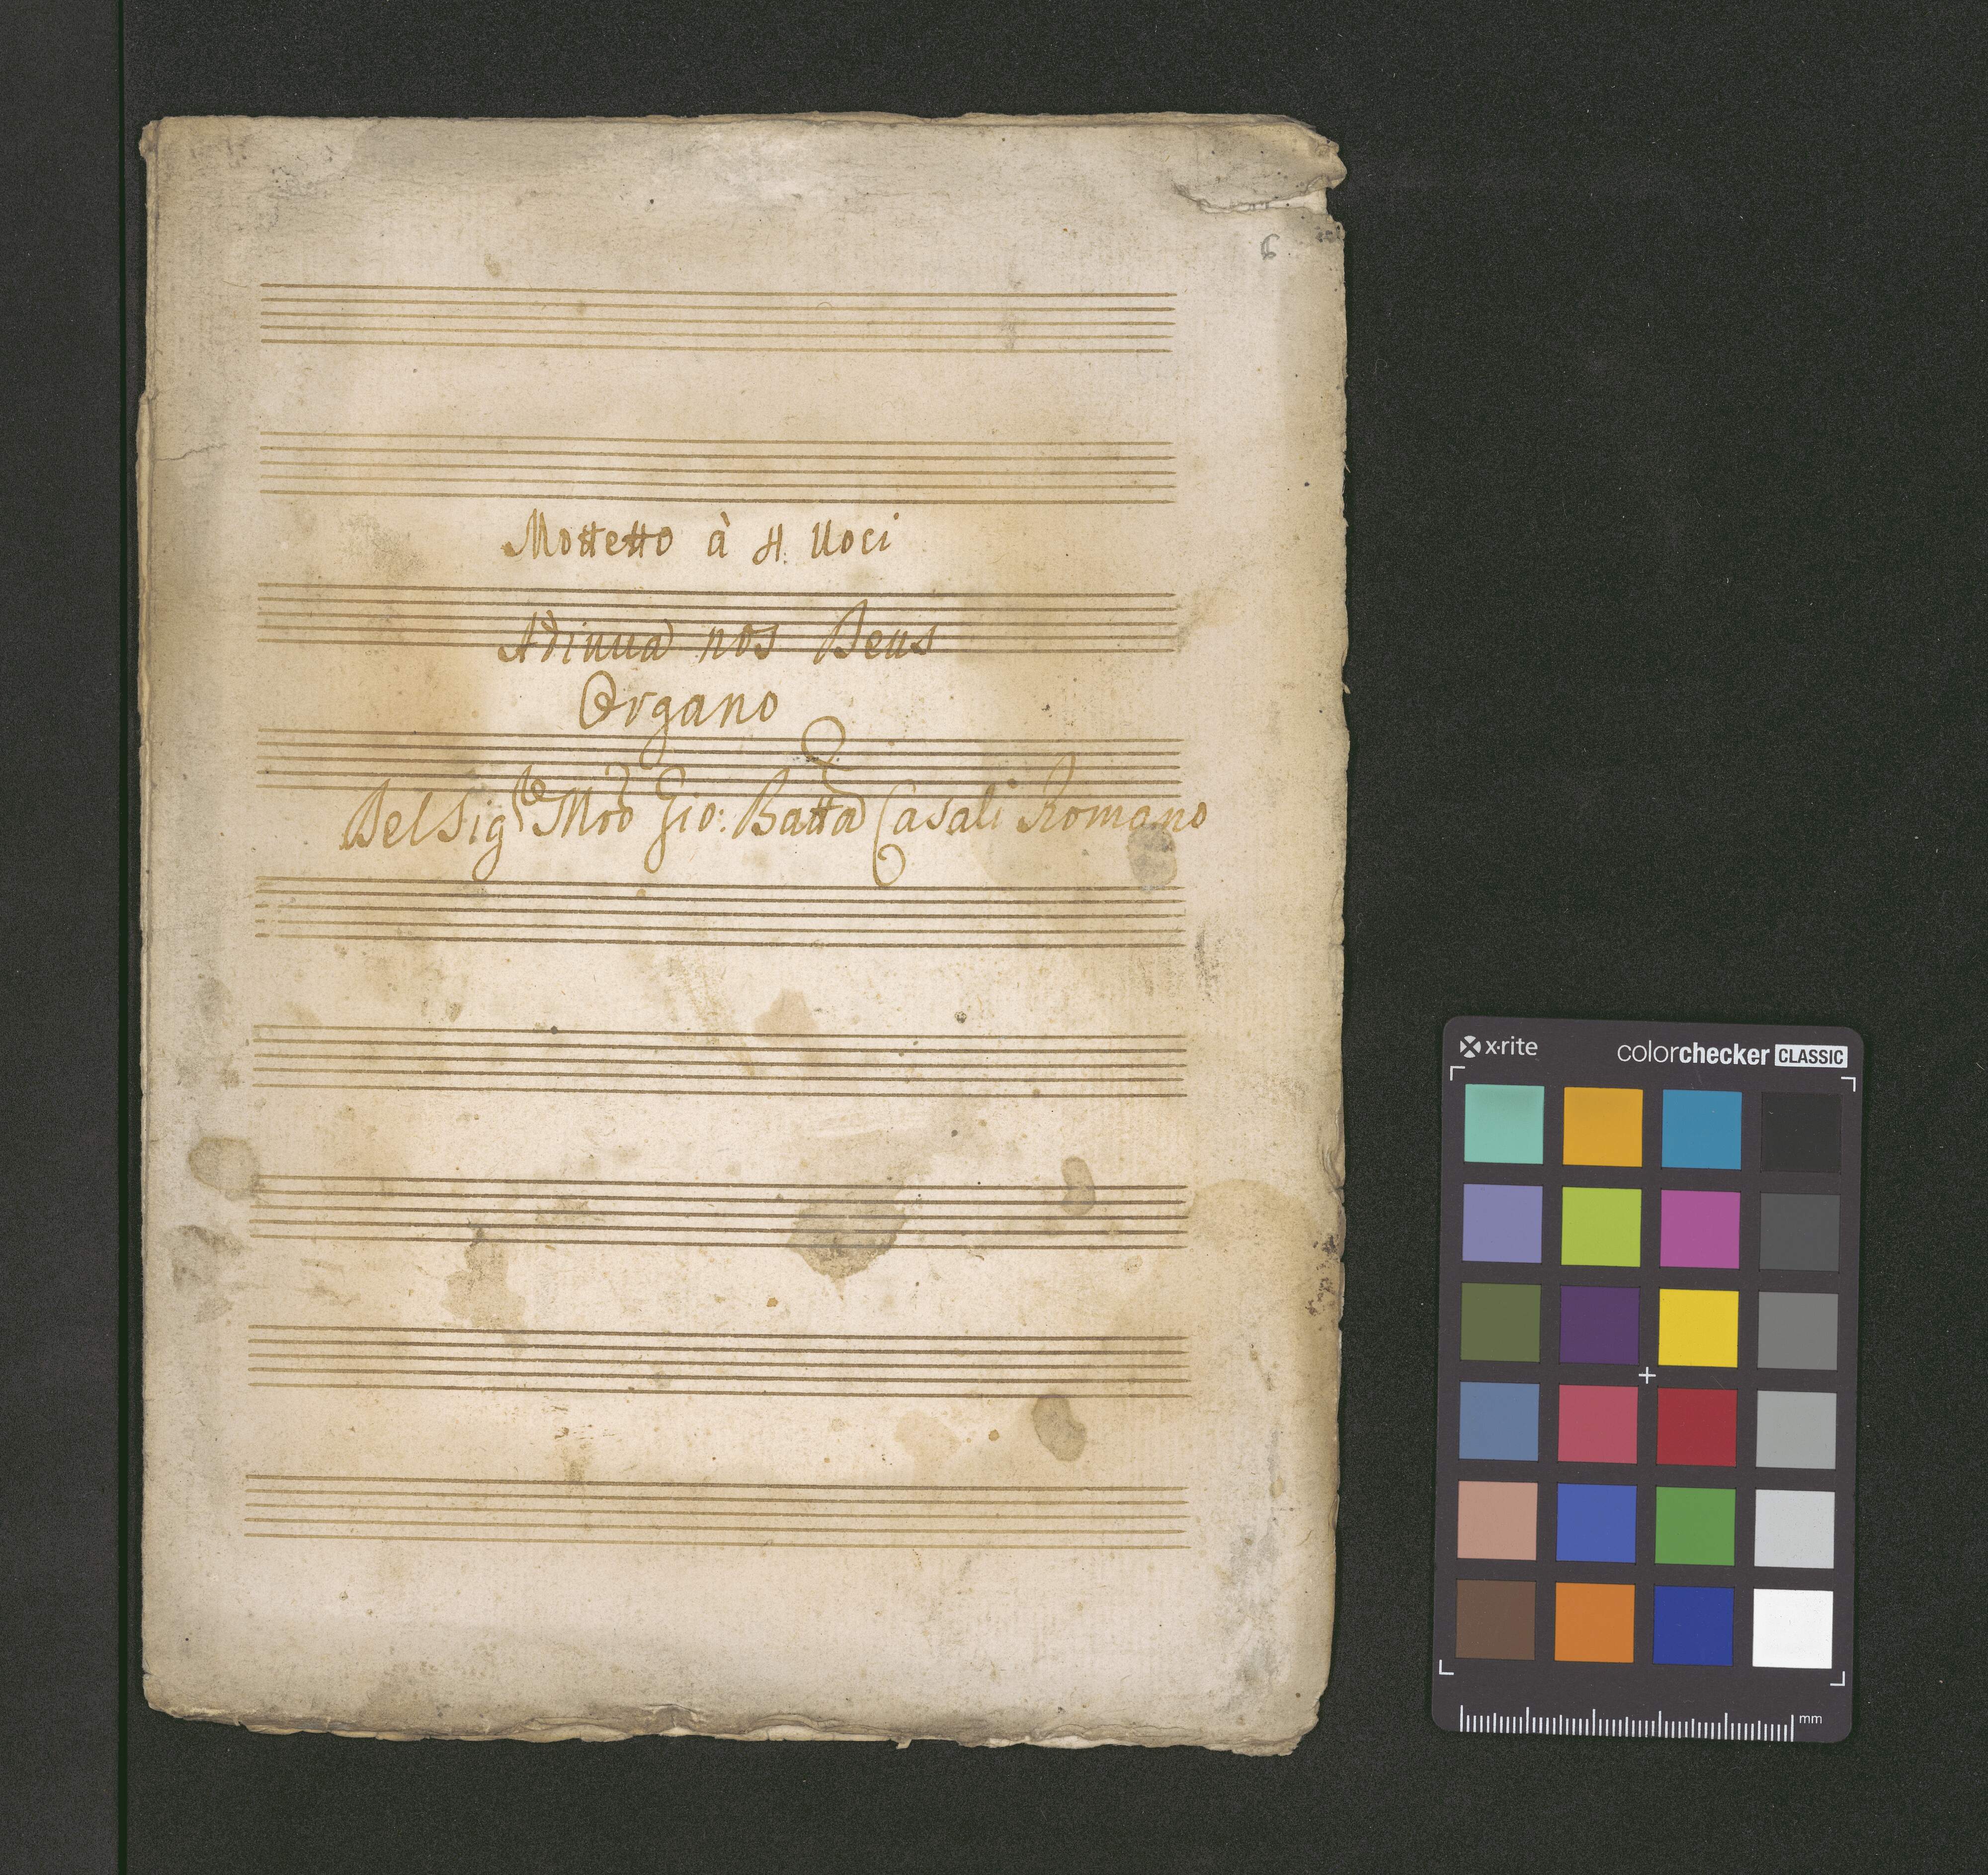 6
Mottetto à 4. Uoci
Adiuua nos Deus
Organo
Del Sig.re Mro Gio: Batta Casali Romano
x·rite colorchecker CLASSIC
mm